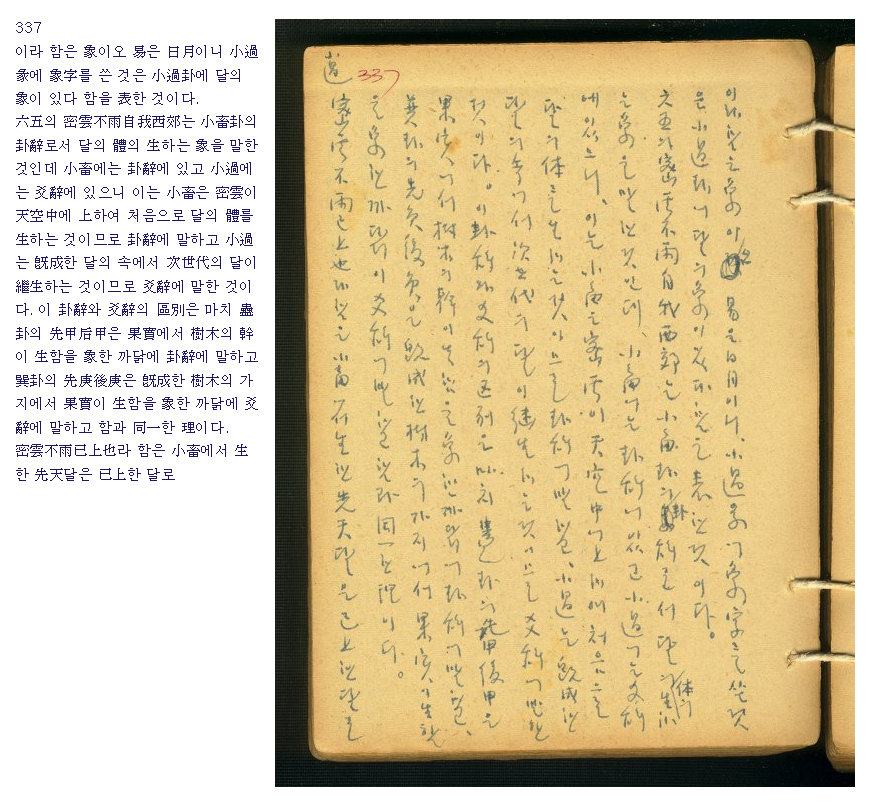 337
이라 함은 象이오 易은 日月이니 小過
彖에 象字를 쓴 것은 小過卦에 달의
象이 있다 함을 表한 것이다.
六五의 密雲不雨自我西郊는 小畜卦의
卦辭로서 달의 體의 生하는 象을 말한
것인데 小畜에는 卦辭에 있고 小過에
는 爻辭에 있으니 이는 小畜은 密雲이
天空中에 上하여 처음으로 달의 體를
生하는 것이므로 卦辭에 말하고 小過
는 旣成한 달의 속에서 次世代의 달이
繼生하는 것이므로 爻辭에 말한 것이
다. 이 卦辭와 爻辭의 區別은 마치 蠱
卦의 先甲后甲은 果實에서 樹木의 幹
이 生함을 象한 까닭에 卦辭에 말하고
巽卦의 先庚後庚은 旣成한 樹木의 가
지에서 果實이 生함을 象한 까닭에 爻
辭에 말하고 함과 同一한 理이다.
密雲不雨已上也라 함은 小畜에서 生
한 先天달은 已上한 달로
過 337
이라 함은 象이오 易은 日月이니, 小過彖에 象字를 쓴 것
은 小過卦에 달의 象이 있다 함을 表한 것이다。
六五의 密雲不雨自我西郊는 小畜卦의 卦辭로서 달의 体의 生하
는 象을 말한 것인데、小畜에는 卦辭에 있고 小過에는 爻辭
에 있으니, 이는 小畜은 密雲이 天空中에 上하여 처음으로
달의 体를 生하는 것이므로 卦辭에 말하고、小過는 旣成한
달의 속에서 次世代의 달이 継生하는 것이므로 爻辭에 말한
것이다。이 卦辭와 爻辭의 区別은 마치 蠱卦의 先甲後甲은
果實에서 樹木의 幹이 生함을 象한 까닭에 卦辭에 말하고、
巽卦의 先庚後庚은 旣成한 樹木의 가지에서 果實이 生함
을 象한 까닭에 爻辭에 말하고 함과 同一한 理이다。
密雲不雨已上也라 함은 小畜에서 生한 先天달은 已上한 달로